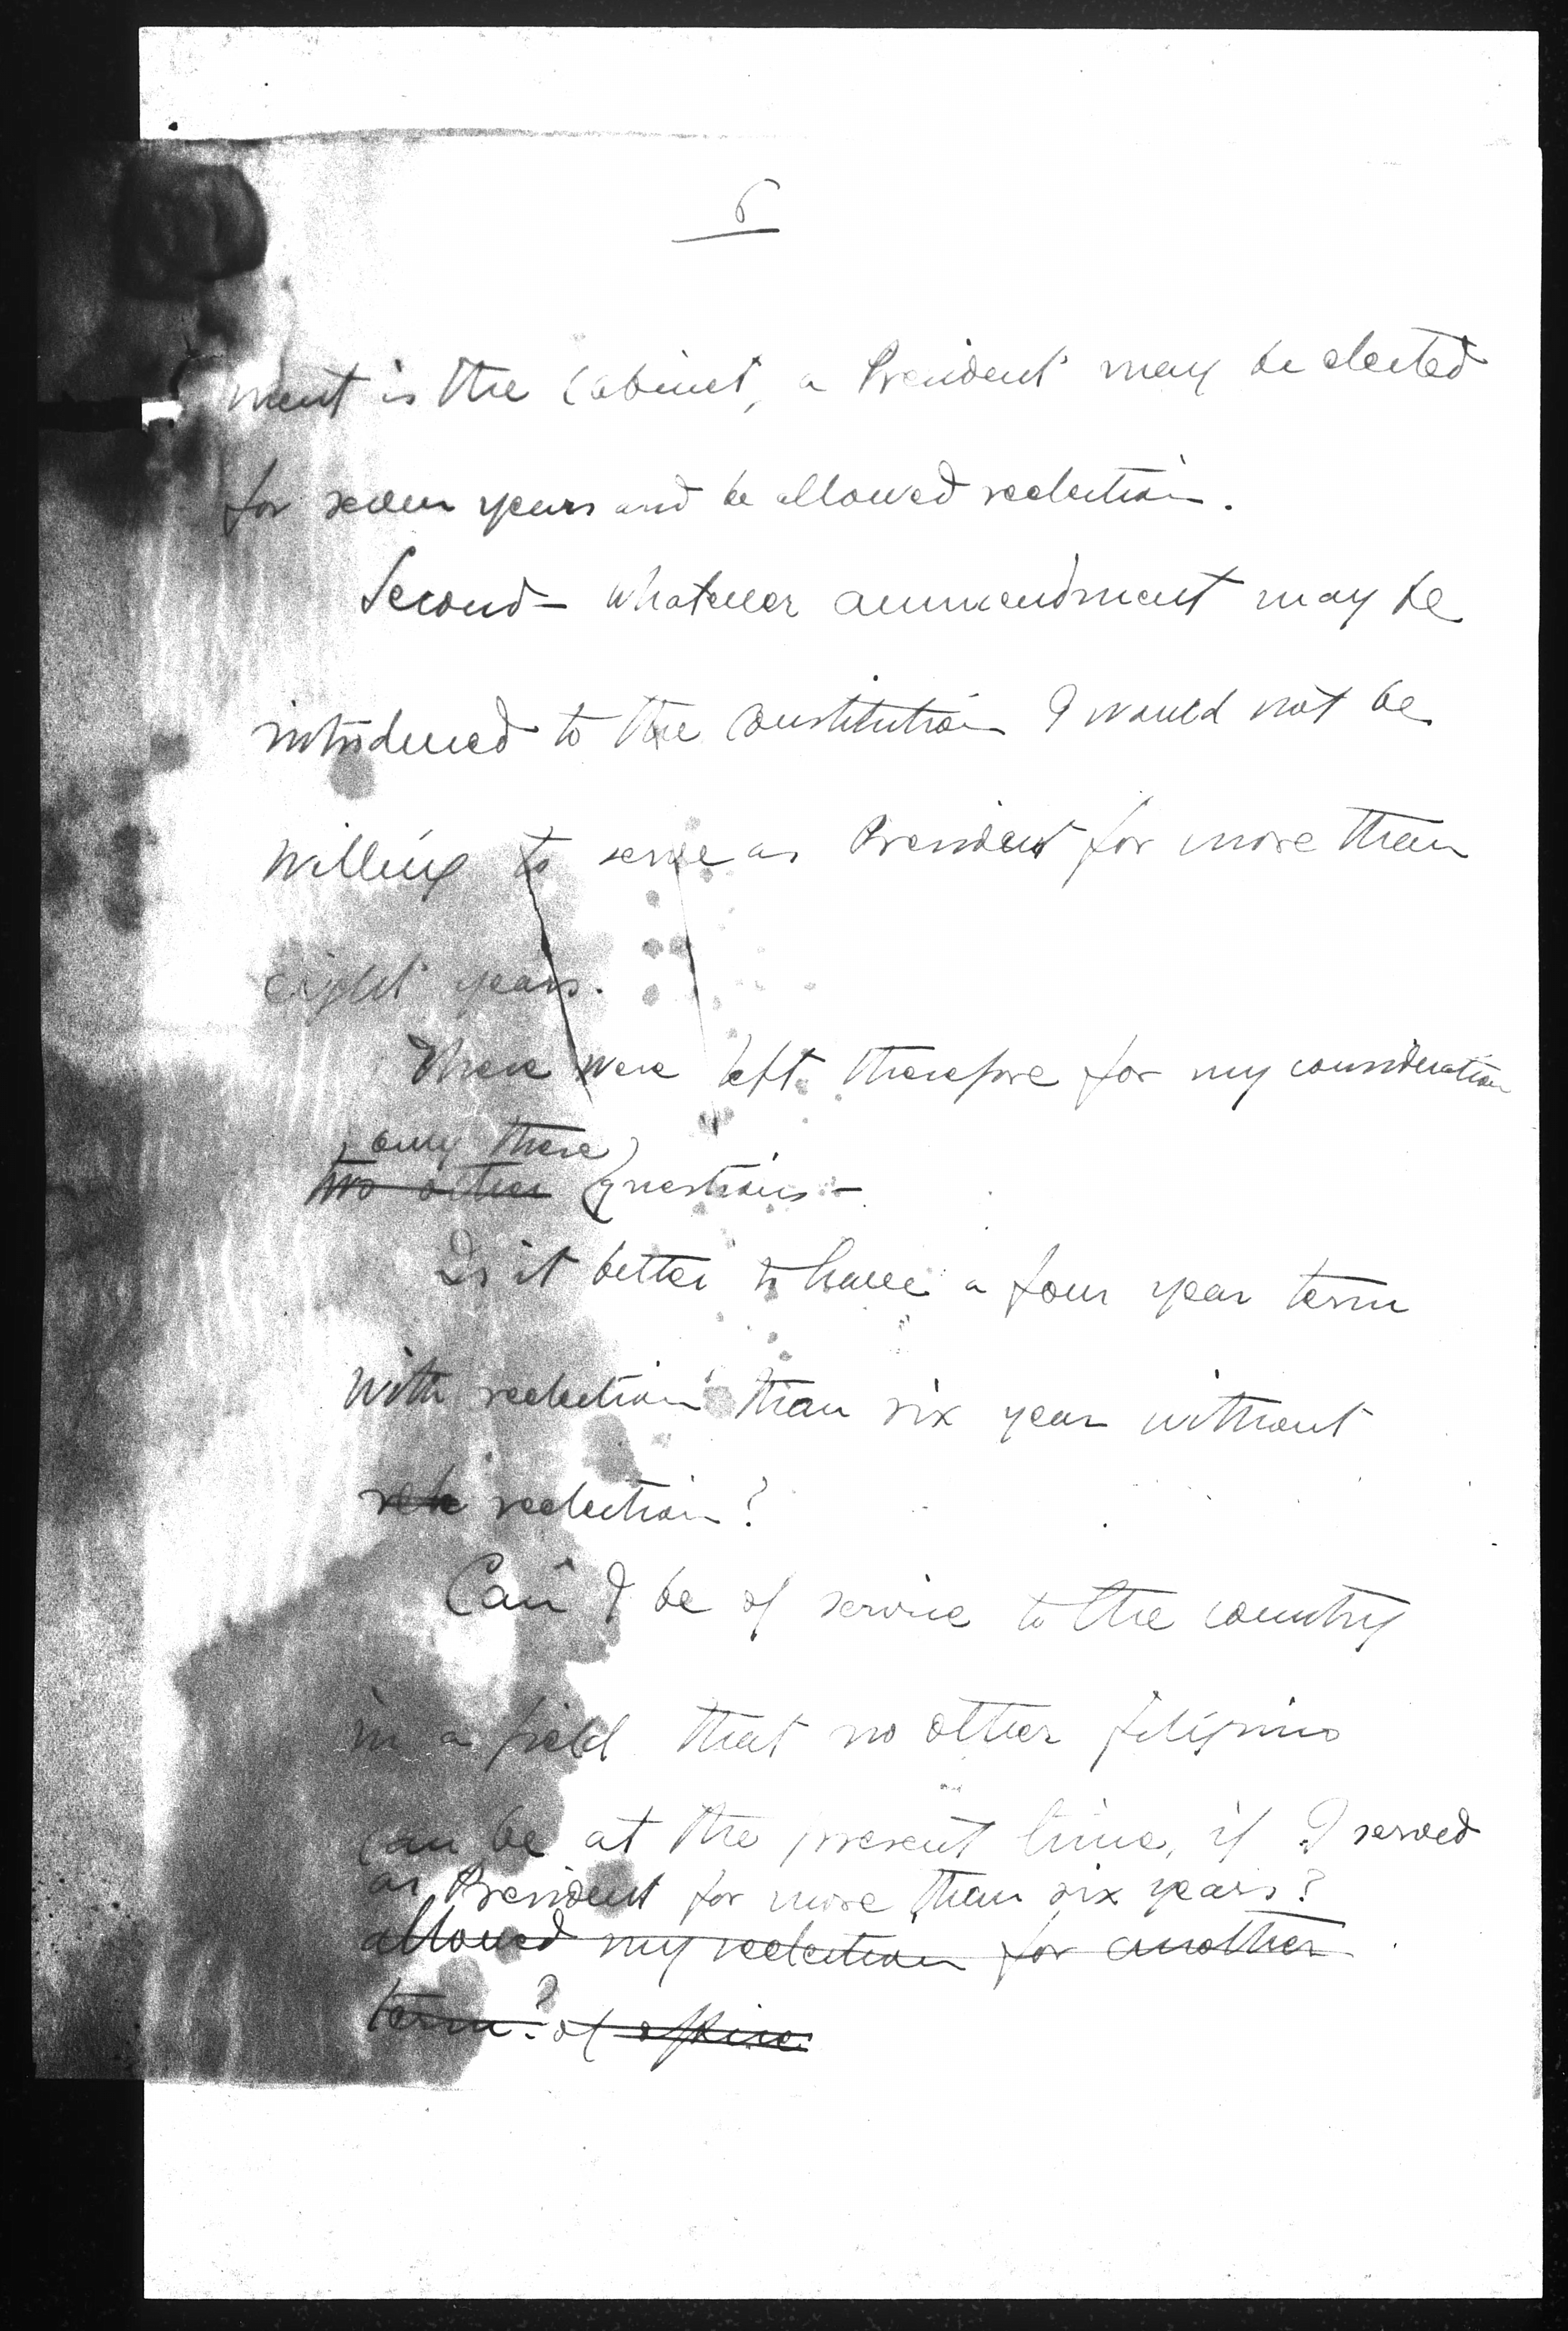 6
ment is the Cabinet, a President may be elected
for seven years and be allowed reelection.
Second – Whatever ammendment may be
introduced to the Constitution I would not be
willing to serve as President for more than
eight years.
There were left therefore for my consideration
only these
two other questions –
Is it better to have a four year term
with reelection than six year without
ree reelection?
Can I be of service to the country
in a field that no other filipino
can be at the present time, if I served
as President for more than six years?
allowed my reelection for another
term? of office.